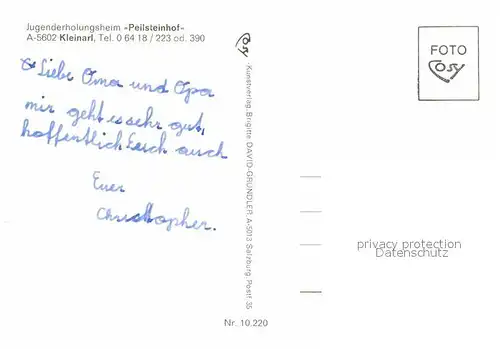 Jugenderholungsheim »Peilsteinhof«
A-5602 Kleinarl, Tel. 0 64 18 / 223 od. 390
Liebe Oma und Opa
mir geht es sehr gut,
hoffentlich Eusch auch
Euer
Christopher.
Cosy
·Kunstverlag Brigitte DAVID-GRÜNDLER, A-5013 Salzburg, Postf. 35
Nr. 10.220
FOTO
Cosy
privacy protection
Datenschutz